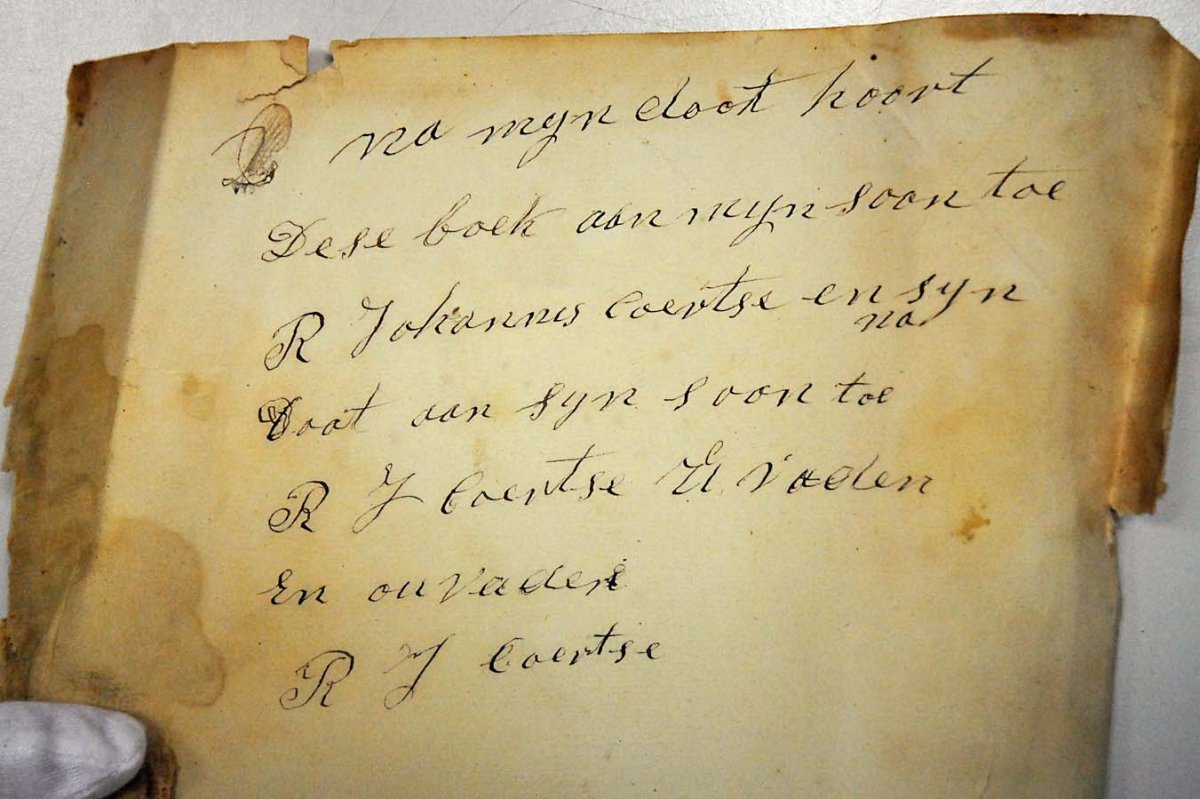 na myn doot hoort
Dese boek aan myn soon toe
R Johannis Coertse en syn
na
Doot aan syn soon toe
R J Coertse U vader
En ou vader
R J Coertse